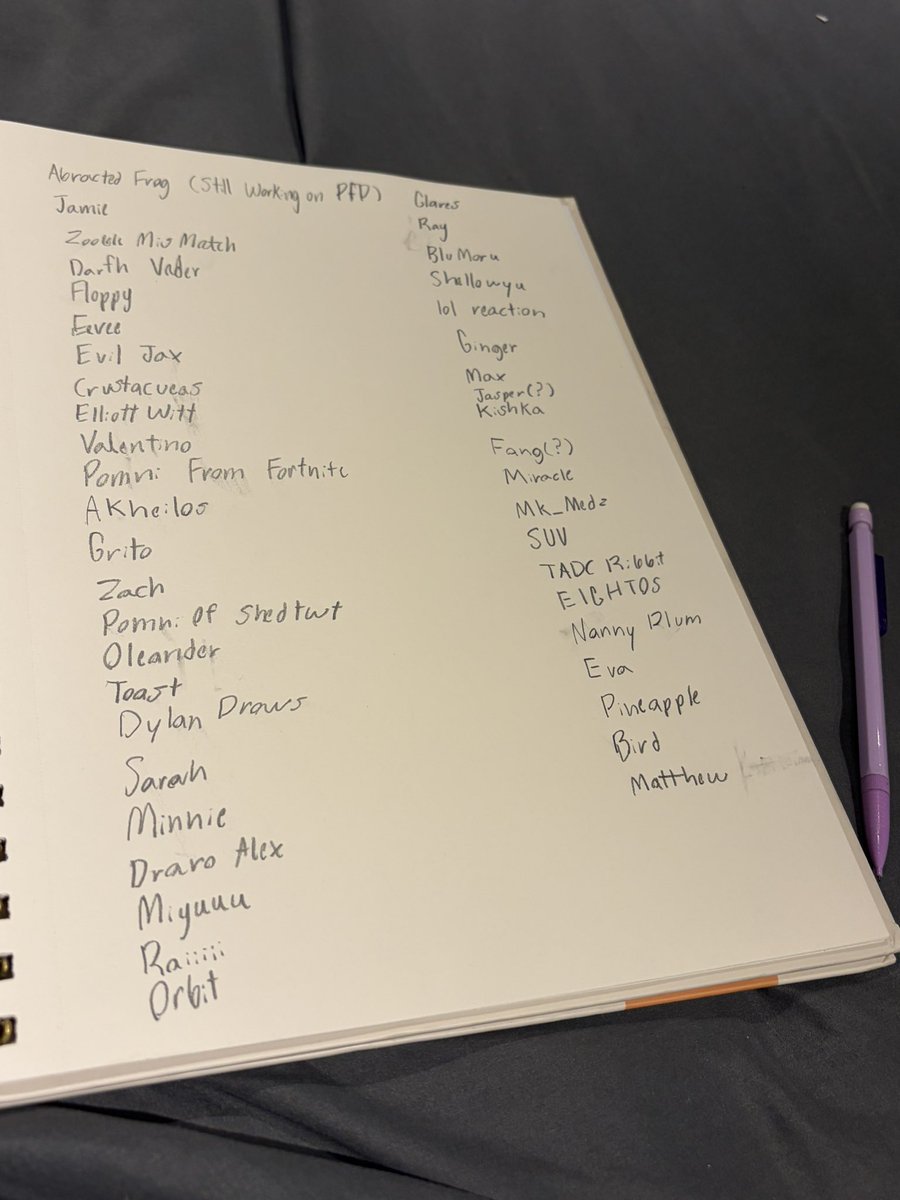 Abracted Frag (Still Working on PFP)
Jamie
Mis Match
Darth Vader
Floppy
Eevee
Evil Jax
Crustacueas
Elliott Witt
Valentino
Pomni From Fortnite
Akheilos
Grito
Zach
Pomni Of Shedtwt
Oleander
Toast
Dylan Draws
Sarah
Minnie
Draro Alex
Miyuuu
Raiiiii
Orbit
Glares
Ray
BluMoru
Shallowyu
lol reaction
Ginger
Max
Jasper(?)
Kishka
Fang(?)
Miracle
Mk_Medz
SUV
TADC Ribbit
EIGHTOS
Nanny Plum
Eva
Pineapple
Bird
Matthew